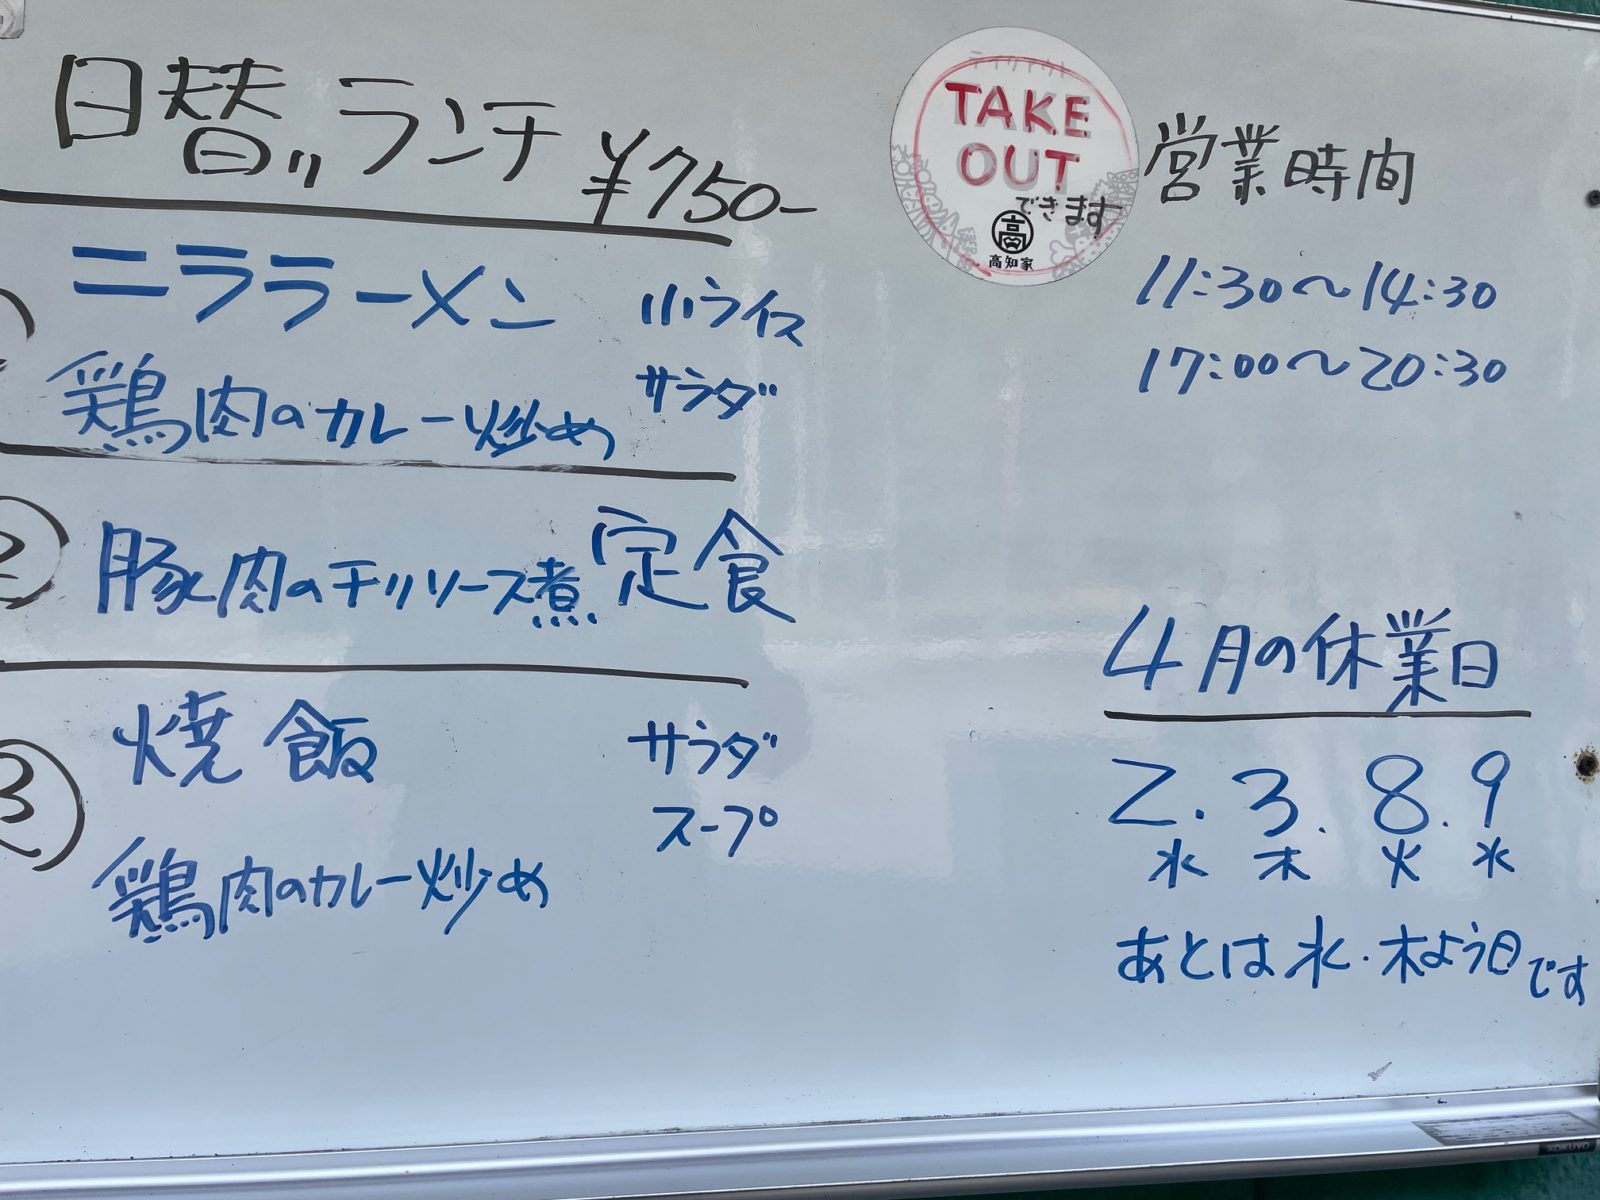 日替りランチ ¥750-
ニララーメン 小ライス
鶏肉のカレー炒め サラダ
② 豚肉のチリソース煮定食
③ 焼飯 サラダ
スープ
鶏肉のカレー炒め
テイクアウト
TAKE
OUT
できます
高
高知家
営業時間
11:30〜14:30
17:00〜20:30
4月の休業日
2.3.8.9
水 木 火 水
あとは水・木よう日です
KOKUYO